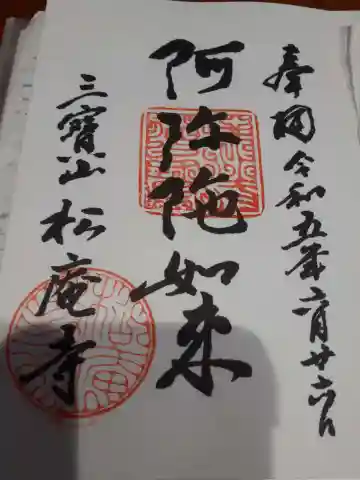 奉拝 令和五年六月廿六日
阿弥陀如来
三寶山 松庵寺